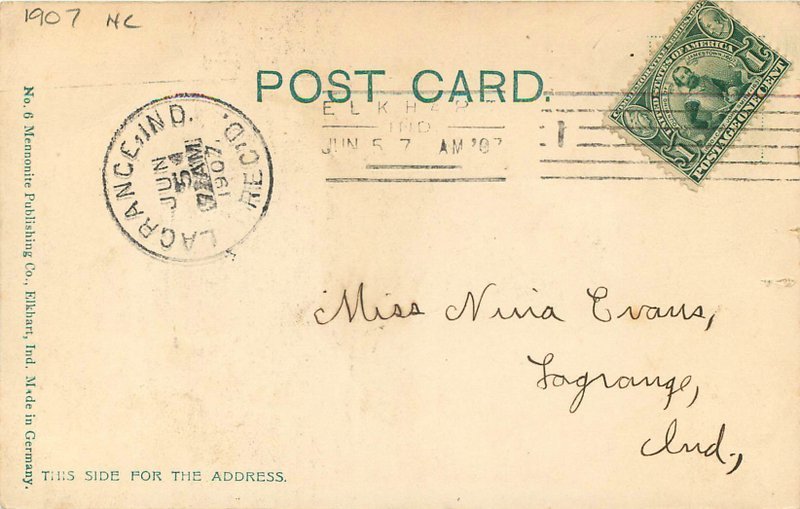 1907 NC
POST CARD.
ELKHART
IND
JUN 5 7 AM '07
LAGRANGE, IND.
REC'D.
JUN
5
AM
1907
UNITED STATES OF AMERICA
POSTAGE ONE CENT
1
1
Miss Nina Evans,
Lagrange,
Ind.,
No. 6 Mennonite Publishing Co., Elkhart, Ind. Made in Germany.
THIS SIDE FOR THE ADDRESS.